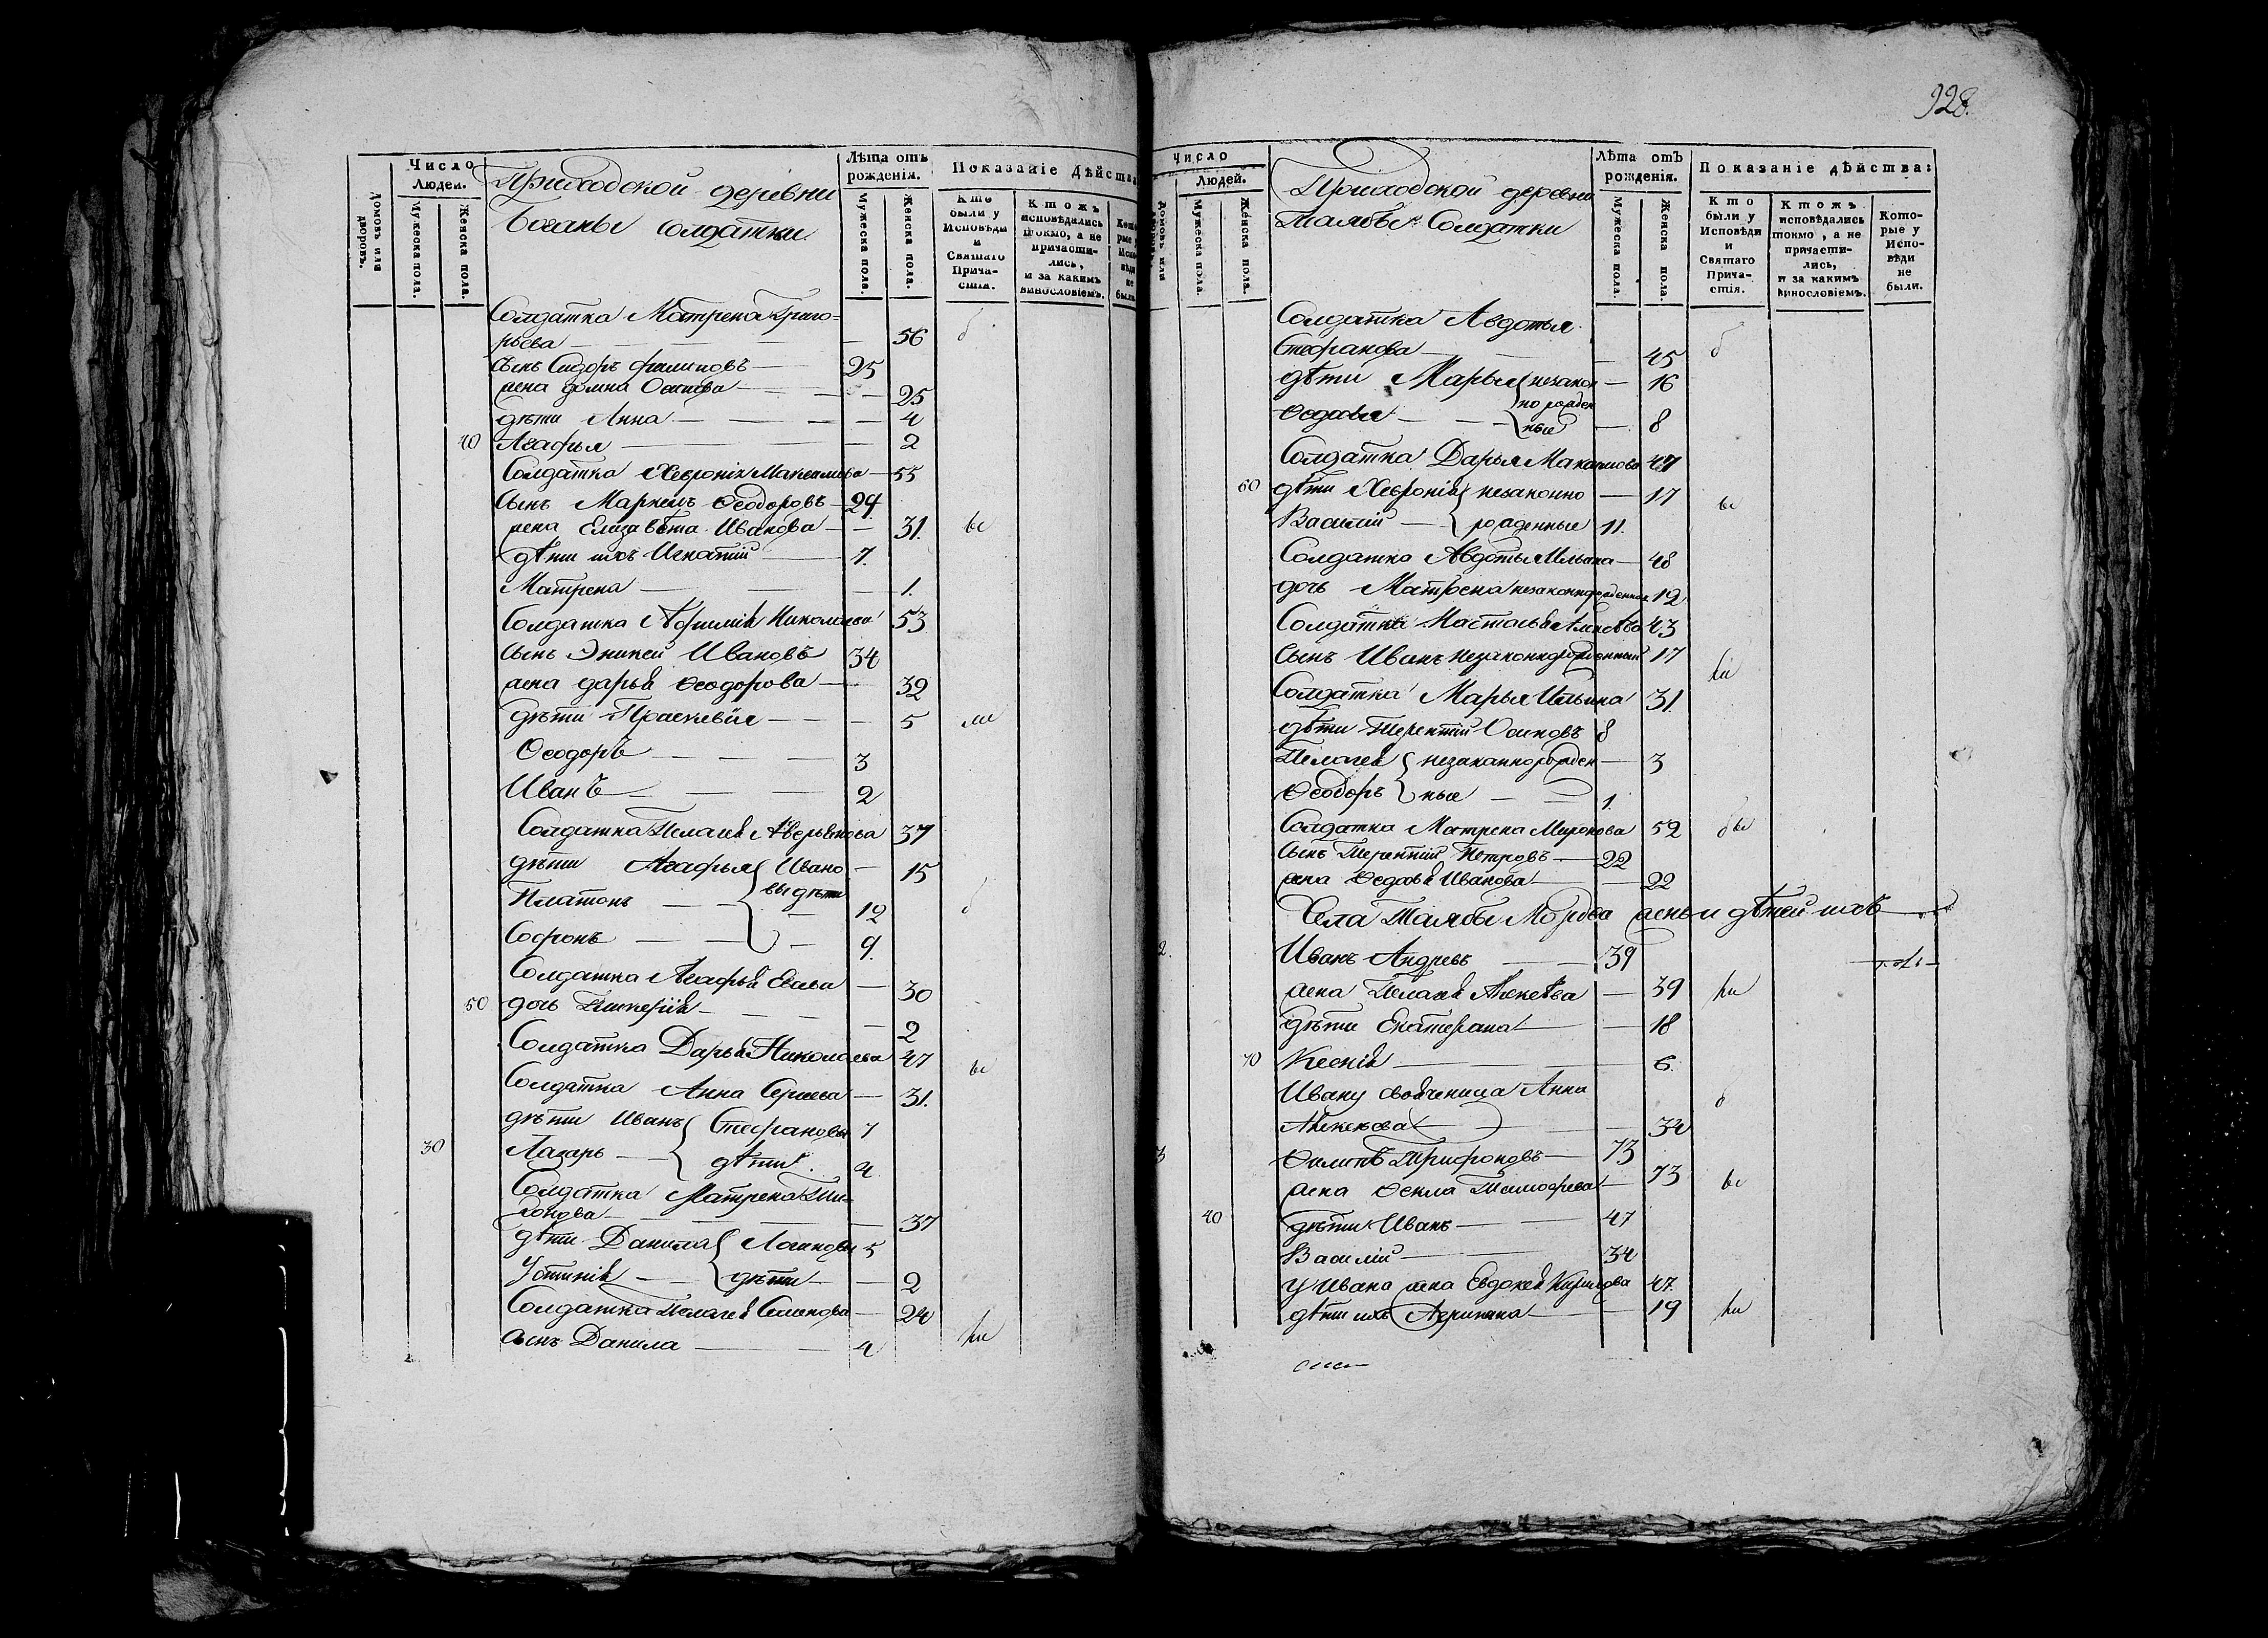 928.
Число
Людей.
Домовъ или дворовъ.
Мужеска пола.
Женска пола.
Приходской деревни
солдатки
Лѣта отъ
рожденія.
Мужеска пола.
Женска пола.
Показаніе дѣйства
Кто
были у
Исповѣди
и
Святаго
Прича-
стія.
Ктожъ
исповѣдались
токмо, а не
причасти-
лись,
и за какимъ
винословіемъ.
Солдатка Матрена Григо-
рьева — 56
сынъ Сидоръ Филиповъ — 25
жена Домна Осипова — 25
дѣти Анна — 4
40 Агафья — 2
Солдатка Хевронія Максимова — 55
Сынъ Маркелъ Ѳеодоровъ — 29
жена Елизавѣта Иванова — 31.
дѣти ихъ Игнатій — 7.
Матрена — 1.
Солдатка Николаева 53
Сынъ Ивановъ 34
жена Дарья Ѳеодорова — 32
дѣти Праскевія — 5
Ѳеодоръ — 3
Иванъ — 2
Солдатка Пелагея Аверьянова 37
дѣти Агафья { Ивано — 15
Платонъ — вы дѣти — 12
Софронъ — 9.
Солдатка Агафья — 30
50 дочь — 2
Солдатка Дарья Николаева 47
Солдатка Анна Сергеева — 31.
дѣти Иванъ { Стефановы 7
30 Лазарь — дѣти. 4
Солдатка Матрена Ти-
хонова — 37
дѣти Данила { Логиновы 5
Устинія — дѣти — 2
Солдатка Пелагея Семенова — 24
сынъ Данила — 4
Число
Людей.
Мужеска пола.
Женска пола.
Приходской деревни
Солдатки
Лѣта отъ
рожденія.
Мужеска пола.
Женска пола.
Показаніе дѣйства:
Кто
были у
Исповѣди
и
Святаго
Прича-
стія.
Ктожъ
исповѣдались
токмо, а не
причасти-
лись,
и за какимъ
винословіемъ.
Кото-
рые у
Испо-
вѣди
не
были.
Солдатка Авдотья
Стефанова — 45
дѣти Марья { незакон — 16
Ѳедосья — но рожден
ные — 8
Солдатка Дарья 47
60 дѣти Хевронія { незаконно — 17
Василій — { рожденные 11.
Солдатка Авдотья Ильина — 48
дочь Матрена незаконнорожденная 12
Солдатка Настасья Алексѣева 43
Сынъ Иванъ незаконнорожденный 17
Солдатка Марья Ильина 31.
дѣти Терентій Осиповъ 8
Пелагея { незаконнорожден — 3
Ѳеодоръ { ные — 1.
Солдатка Матрена Миронова 52
Сынъ Терентій Петровъ — 22
жена Ѳедосья Иванова — 22
Села Мордва жены и дѣтей ихъ
Иванъ Андреевъ — 39
жена Пелагея Алексѣева — 39
дѣти Екатерина — 18
70 Ксенія — 6.
Ивану своячиница Анна
Алексеева — 34
Филипъ Трифоновъ — 73
жена Ѳекла Тимофеева — 73
40 дѣти Иванъ — 47
Василій — 34
У Ивана жена Евдокея Кирилова 47.
дѣти ихъ Агрипина — 19